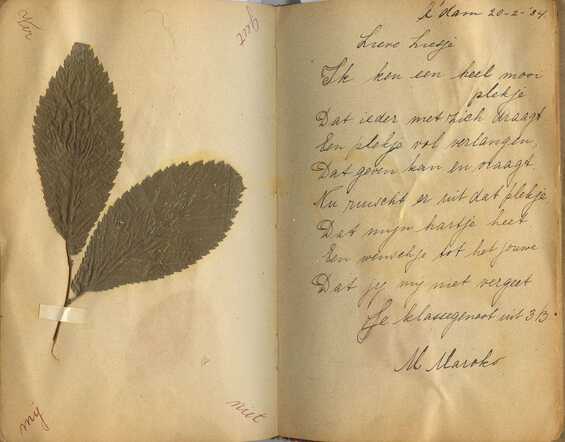 Ver
geet
mij
niet
A'dam 20-2-'34
Lieve Liesje
Ik ken een heel mooi
plekje
Dat ieder met zich draagt
Een plekje vol verlangen,
Dat geven kan en vraagt.
Nu ruischt er uit dat plekje
Dat mijn hartje heet
Een wenschje tot het jouwe
Dat jij mij niet vergeet
Je klassegenoot uit 3B.
M Maroko